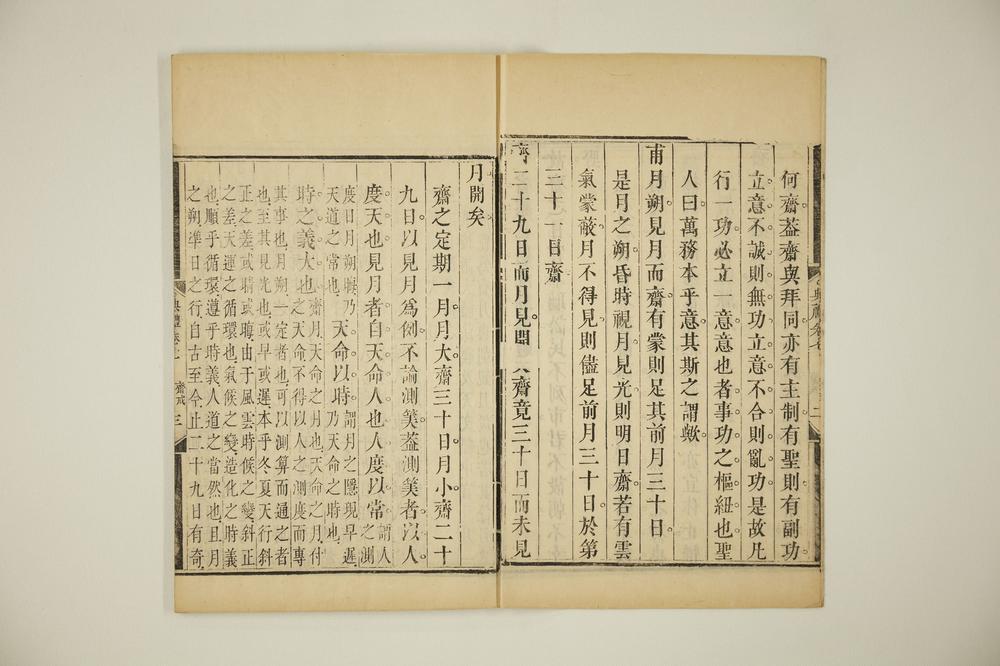 何齋葢齋與拜同亦有主制有聖則有副功
立意不誠則無功立意不合則亂功是故凡
行一功必立一意意也者事功之樞紐也聖
人曰萬務本乎意其斯之謂歟
甫月朔見月而齋有蒙則足其前月三十日
是月之朔昏時視月見光則明日齋若有雲
氣蒙蔽月不得見則儘足前月三十日於第
三十一日齋
齊二十九日而月見開 齋竟三十日而未見
典禮卷七
二
月開矣
齋之定期一月月大齋三十日月小齋二十
九日以見月為例不論測筭葢測筭者以人
度天也見月者自天命人也人度以常謂人之測
度日月朔晦乃天道之常也天命以時謂月之隱現早遲乃天命之時也
時之義大也齋月天命之月也天命之月付之天命不得以人之測度而專
其事也月朔一定者也可以測算而通之者
也至其見光也或早或遲本乎冬夏天行斜
正之差或晴或晦由于風雲時候之變斜正
之差天運之循環也氣候之變造化之時義
也順乎循環遵乎時義人道之當然也且月
之朔準日之行自古至今止二十九日有奇
典禮卷七
齋戒
三